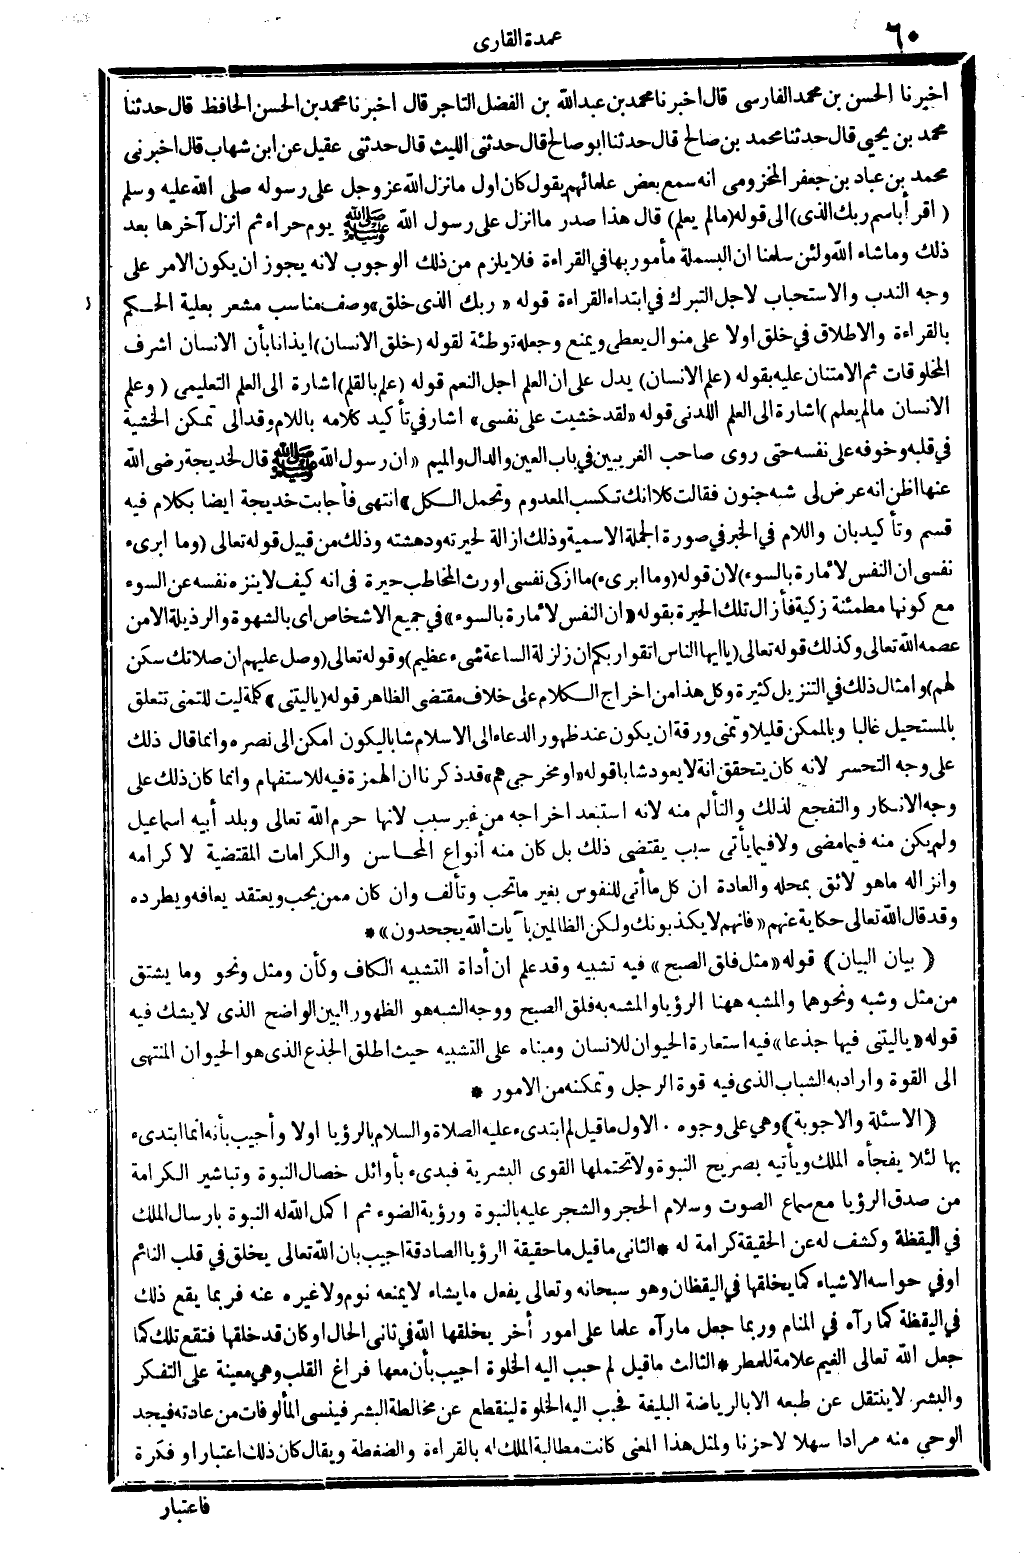 ٦٠
عمدة القارى
اخبرنا الحسن بن محمد الفارسى قال اخبرنا محمد بن عبد الله بن الفضل التاجر قال اخبرنا محمد بن الحسن الحافظ قال حدثنا
محمد بن يحيى قال حدثنا محمد بن صالح قال حدثنا ابو صالح قال حدثنى الليث قال حدثنى عقيل عن ابن شهاب قال اخبرنى
محمد بن عباد بن جعفر المخزومى انه سمع بعض علمائهم يقول كان اول ما نزل الله عز وجل على رسوله صلى الله عليه وسلم
(اقرأ باسم ربك الذى) الى قوله (مالم يعلم) قال هذا صدر ما انزل على رسول الله ﷺ يوم حراء ثم انزل آخرها بعد
ذلك وماشاء الله ولئن سلمنا ان البسملة مأمور بها فى القراءة فلا يلزم من ذلك الوجوب لانه يجوز ان يكون الامر على
وجه الندب والاستحباب لاجل التبرك فى ابتداء القراءة قوله «ربك الذى خلق» وصف مناسب مشعر بعلية الحكم
بالقراءة والاطلاق فى خلق اولا على منوال يعطى ويمنع وجعله توطئة لقوله (خلق الانسان) ايذانا بأن الانسان اشرف
المخلوقات ثم الامتنان عليه بقوله (علم الانسان) يدل على ان العلم اجل النعم قوله (علم بالقلم) اشارة الى العلم التعليمى (وعلم
الانسان مالم يعلم) اشارة الى العلم اللدنى قوله «لقد خشيت على نفسى» اشار فى تأكيد كلامه باللام وقد الى تمكن الخشية
فى قلبه وخوفه على نفسه حتى روى صاحب الغريبين فى باب العين والدال والميم «ان رسول الله ﷺ قال لخديجة رضى الله
عنها اظن انه عرض لى شبه جنون فقالت كلا انك تكسب المعدوم وتحمل الكل» انتهى فأجابت خديجة ايضا بكلام فيه
قسم وتأكيد بان واللام فى الخبر فى صورة الجملة الاسمية وذلك ازالة لحيرته ودهشته وذلك من قبيل قوله تعالى (وما ابرىء
نفسى ان النفس لأمارة بالسوء) لان قوله (وما ابرىء) ما ازكى نفسى اورث المخاطب حيرة فى انه كيف لا ينزه نفسه عن السوء
مع كونها مطمئنة زكية فأزال تلك الحيرة بقوله «ان النفس لأمارة بالسوء» فى جميع الاشخاص اى بالشهوة والرذيلة الا من
عصمه الله تعالى وكذلك قوله تعالى (يا ايها الناس اتقوا ربكم ان زلزلة الساعة شىء عظيم) وقوله تعالى (وصل عليهم ان صلاتك سكن
لهم) وامثال ذلك فى التنزيل كثيرة وكل هذا من اخراج الكلام على خلاف مقتضى الظاهر قوله (ياليتنى) كلمة ليت للتمنى تتعلق
بالمستحيل غالبا وبالممكن قليلا وتمنى ورقة ان يكون عند ظهور الدعاء الى الاسلام شابا ليكون امكن الى نصره وانما قال ذلك
على وجه التحسر لانه كان يتحقق انة لا يعود شابا قوله «او مخرجى هم» قد ذكرنا ان الهمزة فيه للاستفهام وانما كان ذلك على
وجه الانكار والتفجع لذلك والتألم منه لانه استبعد اخراجه من غير سبب لانها حرم الله تعالى وبلد أبيه اسماعيل
ولم يكن منه فيما مضى ولا فيما يأتى سبب يقتضى ذلك بل كان منه أنواع المحاسن والكرامات المقتضية لا كرامه
وانزاله ماهو لائق بمحله والعادة ان كل ما أتى للنفوس بغير ما تحب وتألف وان كان ممن يحب ويعتقد يعافه ويطرده
وقد قال الله تعالى حكاية عنهم «فانهم لا يكذبونك ولكن الظالمين بآيات الله يجحدون» *
(بيان البيان) قوله «مثل فلق الصبح» فيه تشبيه وقد علم ان أداة التشبيه الكاف وكأن ومثل ونحو وما يشتق
من مثل وشبه ونحوهما والمشبه ههنا الرؤيا والمشبه به فلق الصبح ووجه الشبه هو الظهور البين الواضح الذى لا يشك فيه
قوله «ياليتنى فيها جذعا» فيه استعارة الحيوان للانسان ومبناه على التشبيه حيث اطلق الجذع الذى هو الحيوان المنتهى
الى القوة واراد به الشباب الذى فيه قوة الرجل وتمكنه من الامور *
(الاسئلة والاجوبة) وهى على وجوه . الاول ما قيل لم ابتدىء عليه الصلاة والسلام بالرؤيا اولا وأجيب بأنه انما ابتدىء
بها لئلا يفجأه الملك ويأتيه بصريح النبوة ولا تحتملها القوى البشرية فبدىء بأوائل خصال النبوة وتباشير الكرامة
من صدق الرؤيا مع سماع الصوت وسلام الحجر والشجر عليه بالنبوة ورؤية الضوء ثم اكمل الله له النبوة بارسال الملك
فى اليقظة وكشف له عن الحقيقة كرامة له * الثانى ما قيل ما حقيقة الرؤيا الصادقة اجيب بان الله تعالى يخلق فى قلب النائم
او فى حواسه الاشياء كما يخلقها فى اليقظان وهو سبحانه وتعالى يفعل ما يشاء لا يمنعه نوم ولا غيره عنه فربما يقع ذلك
فى اليقظة كما رآه فى المنام وربما جعل ما رآه علما على امور أخر يخلقها الله فى ثانى الحال او كان قد خلقها فتقع تلك كما
جعل الله تعالى الغيم علامة للمطر * الثالث ما قيل لم حبب اليه الخلوة اجيب بأن معها فراغ القلب وهى معينة على التفكر
والبشر لا ينتقل عن طبعه الا بالرياضة البليغة فحبب اليه الخلوة لينقطع عن مخالطة البشر فينسى المألوفات من عادته فيجد
الوحى منه مرادا سهلا لا حزنا ولمثل هذا المعنى كانت مطالبة الملك له بالقراءة والضغطة ويقال كان ذلك اعتبار او فكرة
فاعتبار